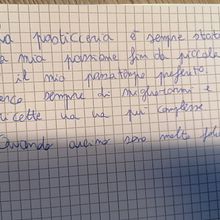 La pasticceria è sempre stata
la mia passione fin da piccola
è il mio passatempo preferito.
cerco sempre di migliorarmi e
ricette va va più complesse
Quando cucino sono molto feli